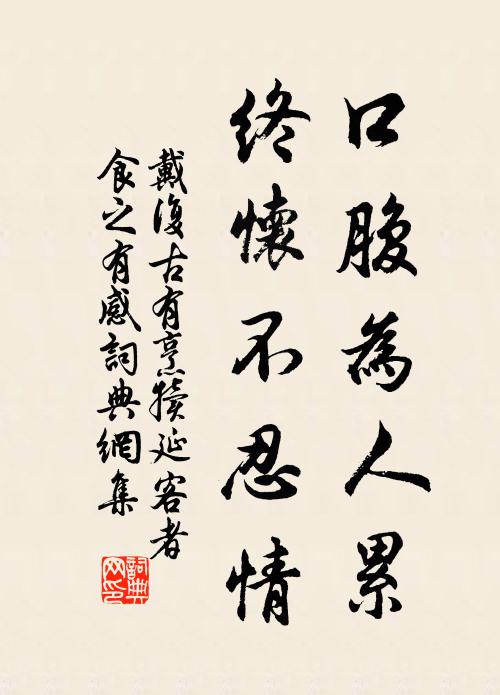 口腹為人累
終懷不忍情
戴復古有烹犢延客者
食之有感詞典網集
詞典
网印